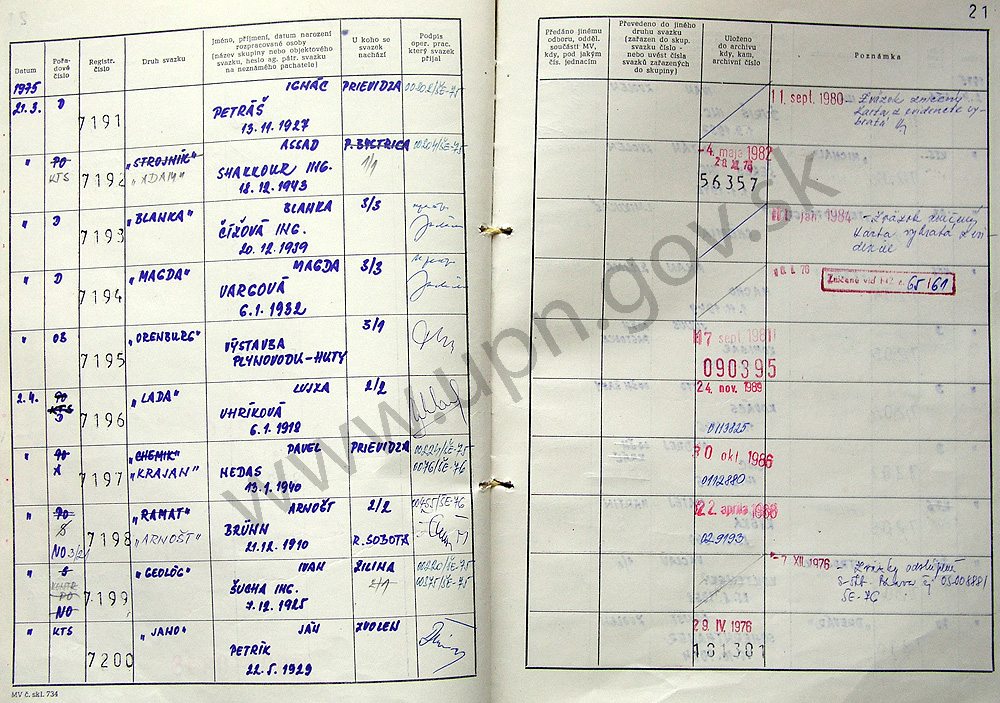 21
Datum
Pořa-
dové
číslo
Registr.
číslo
Druh svazku
Jméno, příjmení, datum narození
rozpracované osoby
(název skupiny nebo objektového
svazku, heslo ag. pátr. svazku
na neznámého pachatele)
U koho se
svazek
nachází
Podpis
oper. prac.
který svazek
přijal
Předáno jinému
odboru, odděl.
součásti MV,
kdy, pod jakým
čís. jednacím
Převedeno do jiného
druhu svazku
(zařazen do skup.
svazku číslo -
nebo uvést čísla
svazků zařazených
do skupiny)
Uloženo
do archivu
kdy, kam,
archivní číslo
Poznámka
1975
21.3. D 7191
IGNÁC
PETRÁŠ
13.11.1927
PRIEVIDZA
00202/ŠE-75
11. sept. 1980
Zväzok zničený
Karta z evidencie vy-
bratá
" PO
KTS
7192
"STROJNÍK"
"ADAM"
ASSAD
SHAKKOUR ING.
18.12.1943
P. BYSTRICA
1/1
00204/ŠE-75
-4. mája 1982
56357
" D 7193
"BLANKA"
BLANKA
ČÍŽOVÁ ING.
20.12.1939
3/3
jan 1984
- Zväzok zničený
Karta vybratá z evi-
dencie
" D 7194
"MAGDA"
MAGDA
VARGOVÁ
6.1.1932
3/3
65/61
" OB 7195
"ORENBURG"
VÝSTAVBA
PLYNOVODU-HUTY
3/1
17 sept 1981
090395
2.4. PO
KTS
D
7196
"LADA"
LUJZA
UHRÍKOVÁ
6.1.1918
2/2
24. nov. 1989
0113825
" PO
A
7197
"CHEMIK"
"KRAJAN"
PAVEL
MEDAS
13.1.1940
PRIEVIDZA
00224/ŠE-75
0076/ŠE-76
30 okt. 1986
0112880
" PO
S
NO
7198
"RAMAT"
"ARNOŠT"
ARNOŠT
BRÜHN
21.12.1910
2/2
R. SOBOTA
00455/ŠE-76
22. apríla 1988
029193
" S
PO
NO
7199
"GEOLÓG"
IVAN
ŠUCHA ING.
7.12.1925
ŽILINA
00220/ŠE-75
00275/ŠE-75
-7 XII. 1976
Zväzky odstúpené
ŠE-76
" KTS 7200
"JANO"
JÁN
PETRÍK
22.5.1929
ZVOLEN
29. IV 1976
181381
MV č. skl. 734
www.upn.gov.sk